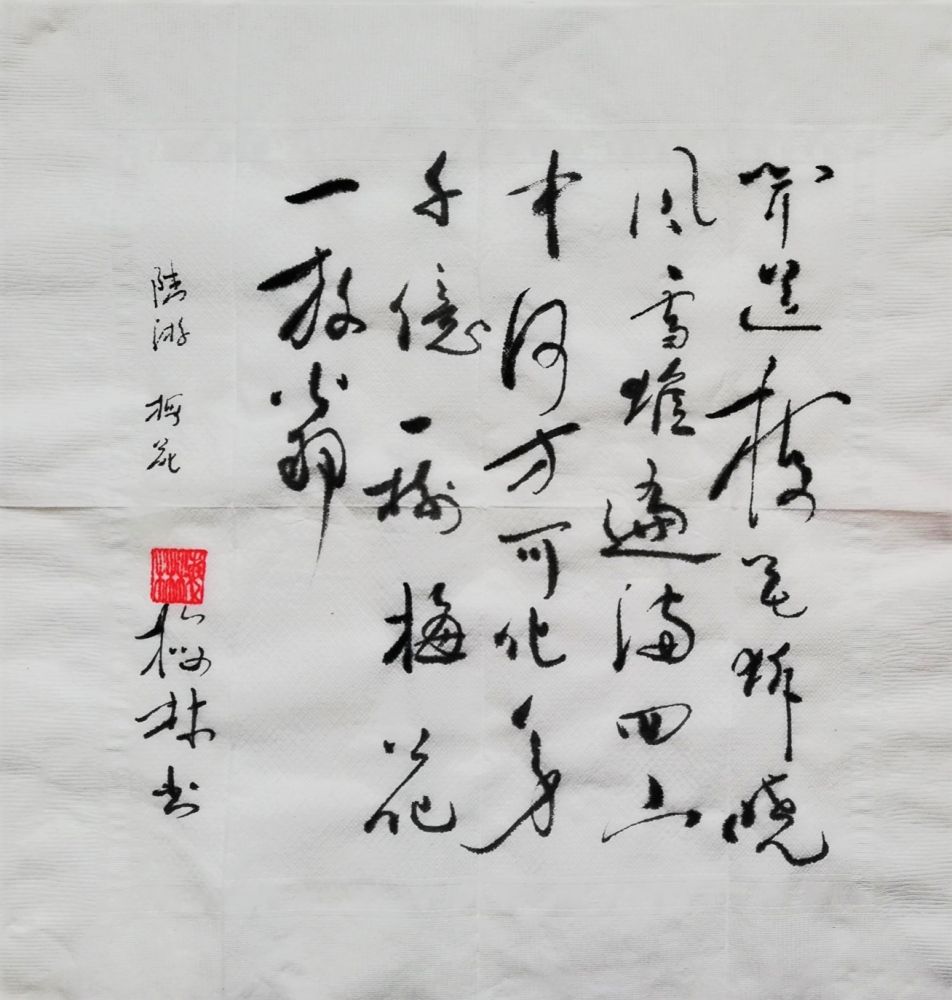 闻道梅花坼晓
风雪堆遍满四山
中何方可化身
千億一樹梅花
一放翁
陸游 梅花
林书